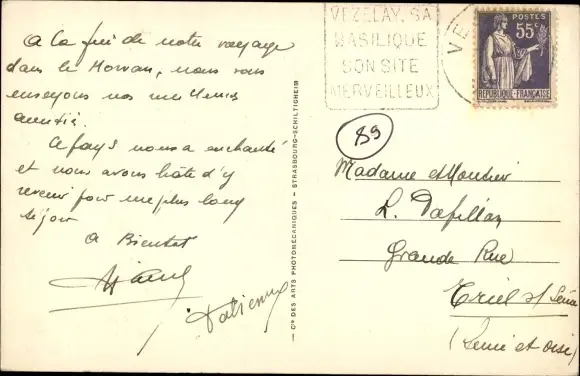 A la fin de notre voyage
dans le Morvan, nous vous
envoyons nos meilleures
amitiés.
Ce pays nous a enchanté
et nous avons hâte d'y
revenir pour un plus long
séjour
A Bientôt
Fabienne
— Cie DES ARTS PHOTOMÉCANIQUES - STRASBOURG-SCHILTIGHEIM
VEZELAY. SA
BASILIQUE
SON SITE
MERVEILLEUX
VE
POSTES
55c
REPUBLIQUE-FRANÇAISE
89
Madame et Monsieur
L.
Grande Rue
Triel s/ Seine
(Seine et oise)